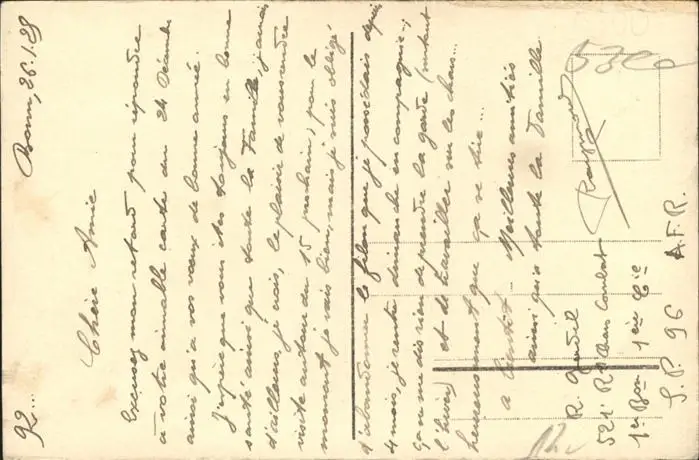 92...
Bonn, 26.1.28
Chère Amie
Excusez mon retard pour répondre
à votre aimable carte du 24 Décembre
ainsi qu'à vos vœux de bonne année.
J'espère que vous êtes toujours en bonne
santé ainsi que toute la Famille, j'aurai
d'ailleurs, je crois, le plaisir de vous rendre
visite autour du 15 prochain; pour le
moment je vais bien, mais je suis obligé
d'abandonner le filon que je possédais depuis
4 mois, je rentre dimanche en compagnie;
ça ne me dis rien de prendre la garde (surtout
l'hiver) et de travailler sur les chars...
heureusement que ça se tire...
à bientôt... Meilleures amitiés
ainsi qu'à toute la Famille
Raymond
R.
521e R. Chars Combat
1er Bon 1ère Cie
S.P. 96 A.F.R.